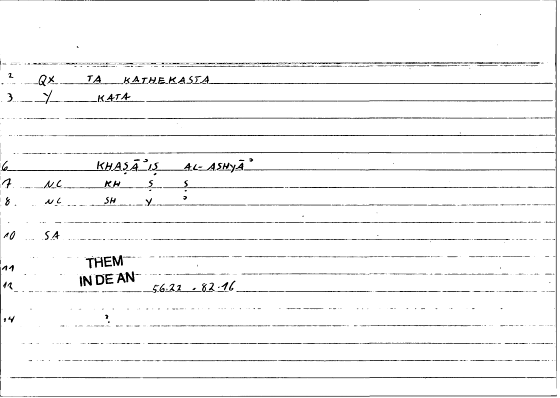 2 QX TA KATHEKASTA
3 Y KATA
6 KHAṢĀʾIṢ AL-ASHYĀʾ
7 NC KH Ṣ Ṣ
8 NC SH Y ʾ
10 SA
11 THEM
IN DE AN
12 56.22 . 82.16
14 ?